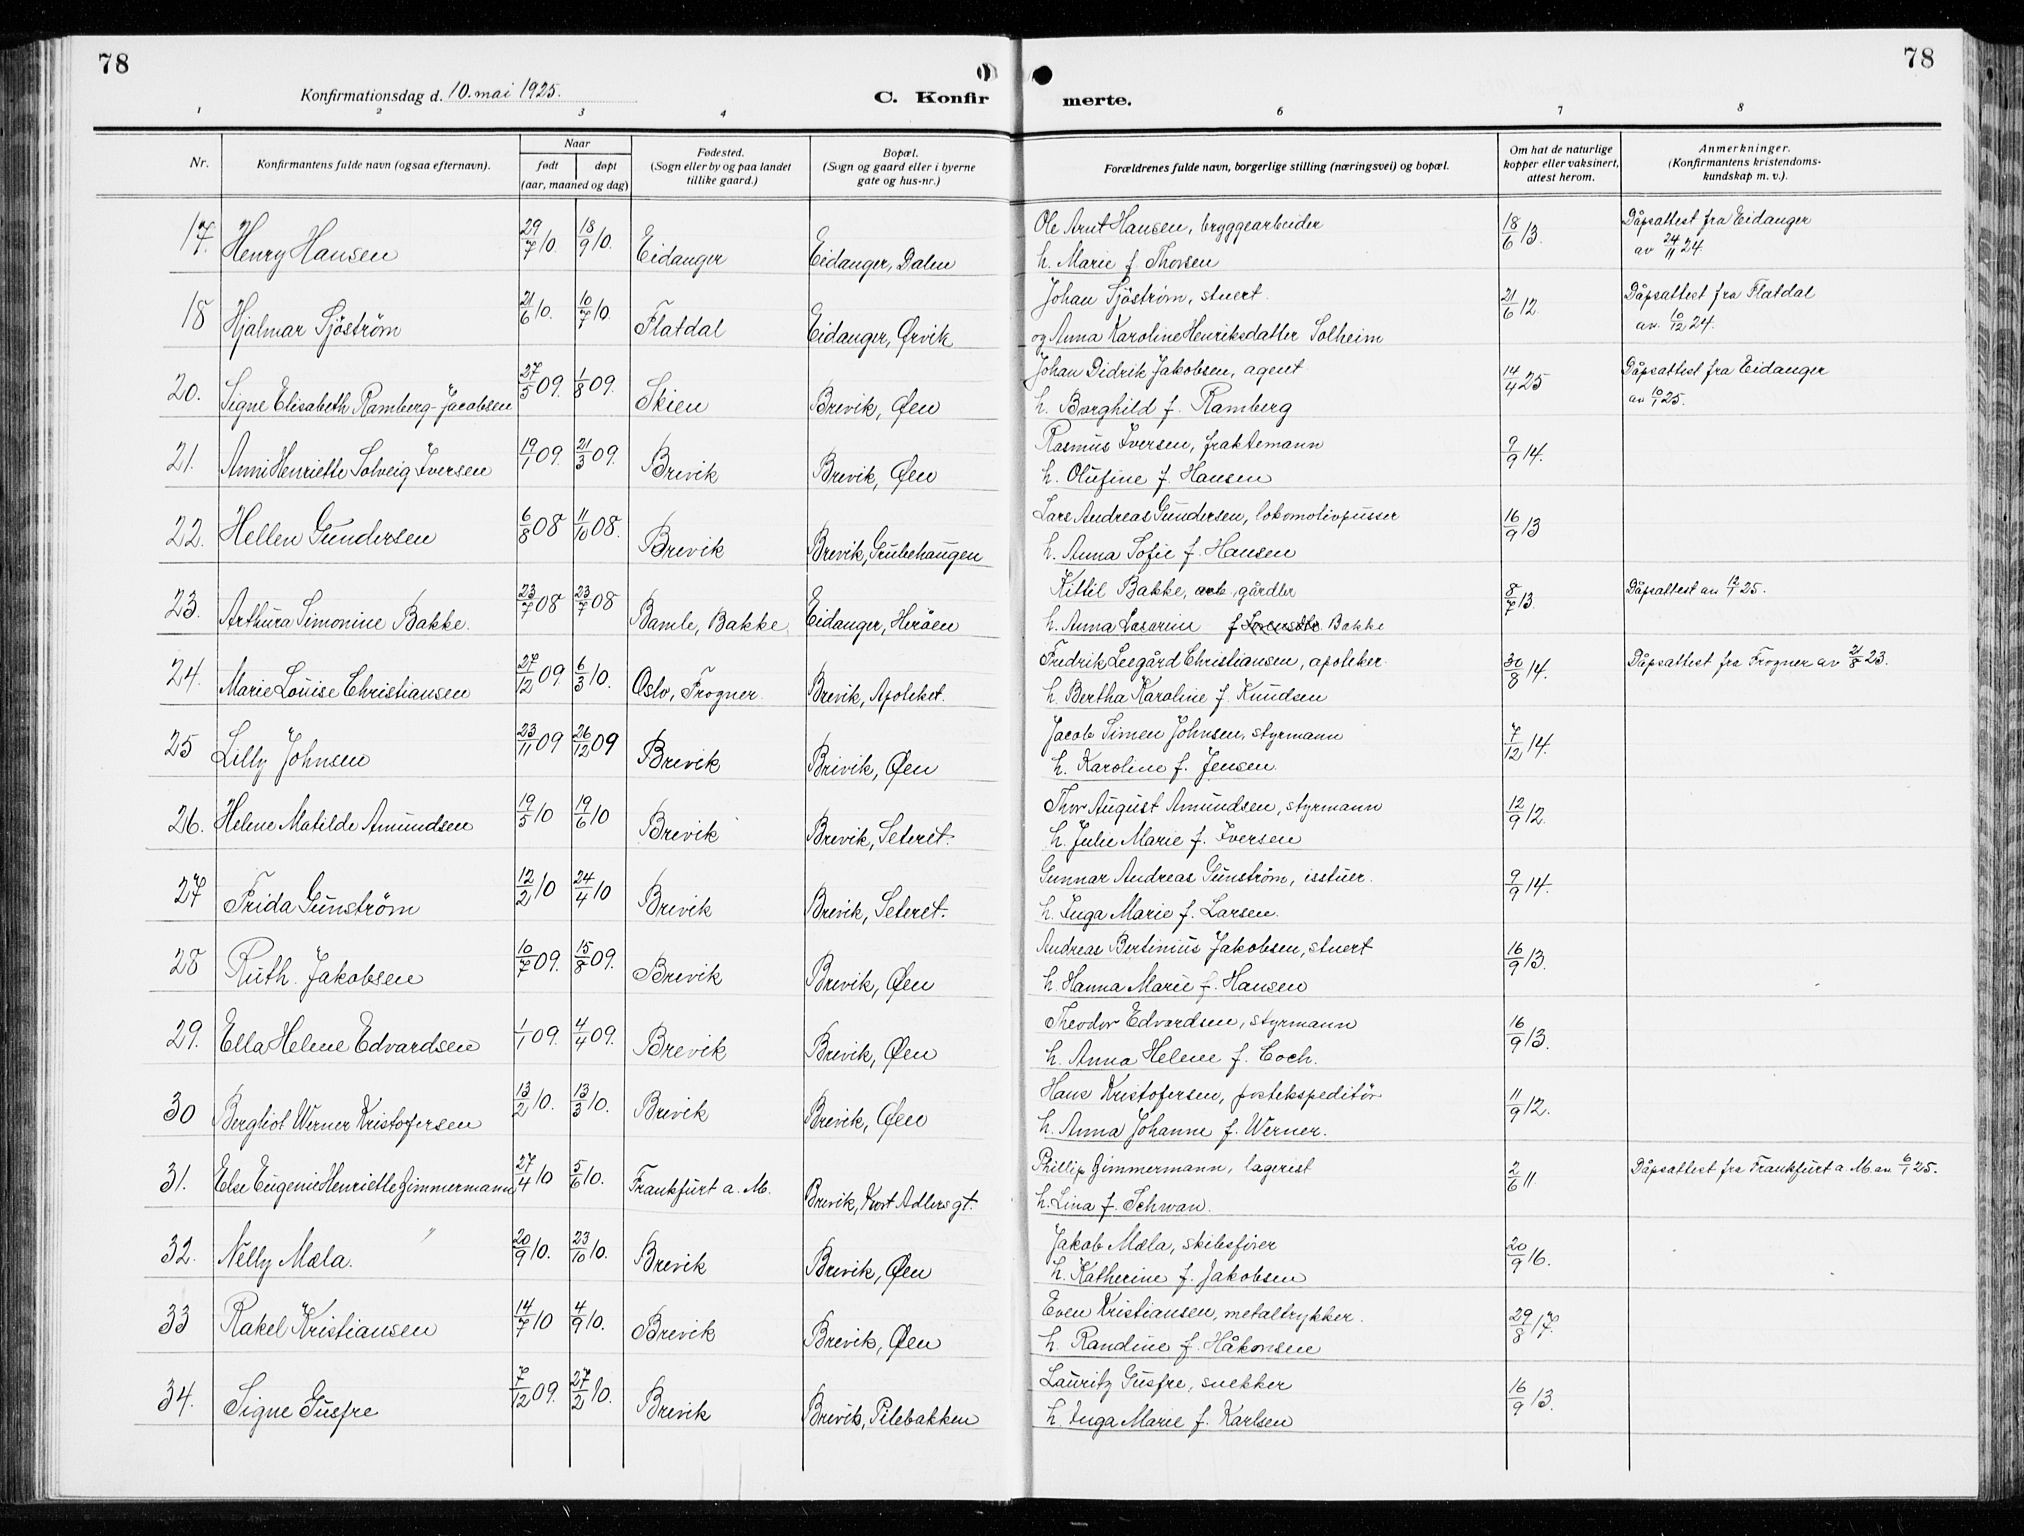 78
78
Konfirmationsdag d. 10. mai 1925.
C. Konfir
merte.
1 2 3 4 6 7 8
Nr.
Konfirmantens fulde navn (ogsaa efternavn).
Naar
født døpt
(aar, maaned og dag)
Fødested.
(Sogn eller by og paa landet
tillike gaard.)
Bopæl.
(Sogn og gaard eller i byerne
gate og hus-nr.)
Forældrenes fulde navn, borgerlige stilling (næringsvei) og bopæl.
Om hat de naturlige
kopper eller vaksinert,
attest herom.
Anmerkninger.
(Konfirmantens kristendoms-
kundskap m. v.).
17. Henry Hansen 29/7 10. 18/9 10. Eidanger Eidanger, Dalen Ole Arnt Hansen, bryggearbeider 18/6 13. Dåpsattest fra Eidanger
h. Marie f. Thorsen av 24/11 24.
18 Hjalmar Sjöström 21/6 10. 10/7 10 Flatdal Eidanger, Ørvik Johan Sjöström, stuert. 21/6 12. Dåpsattest fra Flatdal
og Anna Karoline Henriksdatter Solheim av. 10/12 24.
20. Signe Elisabeth Ramberg-Jacobsen 27/5 09. 1/8 09. Skien Brevik, Øen Johan Didrik Jakobsen, agent 14/4 25 Dåpsattest fra Eidanger
h. Borghild f. Ramberg av 10/1 25.
21. Anni Henriette Solveig Iversen 19/1 09. 21/3 09. Brevik Brevik, Øen Rasmus Iversen, fraktemann 9/9 14.
h. Olufine f. Hansen
22. Hellen Gundersen 6/8 08 11/10 08. Brevik Brevik, Grubehaugen Lars Andreas Gundersen, lokomotivpusser 16/9 13
h. Anna Sofie f. Hansen
23. Arthura Simonine Bakke. 23/7 08 23/7 08 Bamle, Bakke Eidanger, Heröen Kittil Bakke, arb., gårdbr 8/7 13. Dåpsattest av 12/1 25.
h. Anna Lasarine f. Bakke
24. Marie Louise Christiansen 27/12 09 6/3 10. Oslo, Frogner. Brevik, Apoteket. Fredrik Leegård Christiansen, apoteker. 30/8 14. Dåpsattest fra Frogner av 21/8 23.
h. Bertha Karoline f. Knudsen
25 Lilly Johnsen 23/11 09 26/12 09 Brevik Brevik, Øen Jacob Simen Johnsen, styrmann 7/12 14.
h. Karoline f. Jensen.
26. Helene Matilde Amundsen 19/5 10 19/6 10 Brevik Brevik, Seteret. Thor August Amundsen, styrmann 12/9 12.
h. Julie Marie f. Iversen
27 Frida Gunström 12/2 10 24/4 10 Brevik Brevik, Seteret. Gunnar Andreas Gunström, isstuer. 9/9 14.
h. Inga Marie f. Larsen.
28 Ruth. Jakobsen 10/7 09. 15/8 09. Brevik Brevik, Øen Andreas Bertinius Jakobsen, stuert 16/9 13.
h. Hanna Marie f. Hansen
29. Ella Helene Edvardsen 1/1 09. 4/4 09. Brevik Brevik, Øen Theodor Edvardsen, styrmann 16/9 13.
h. Anna Helene f. Coch.
30 Bergliot Werner Kristofersen 13/2 10. 13/3 10. Brevik Brevik, Øen Hans Kristofersen, postekspeditör 11/9 12.
h. Anna Johanne f. Werner.
31. Else Eugenie Henriette Zimmermann 27/4 10 5/6 10. Frankfurt a. M. Brevik, Kort Adlers gt. Phillip Zimmermann, lagerist 2/6 11 Dåpsattest fra Frankfurt a. M. av 6/1 25.
h. Lina f. Schwan.
32. Nelly Mæla. 20/9 10. 23/10 10. Brevik Brevik, Øen Jakob Mæla, skibsfører 20/9 16.
h. Katherine f. Jakobsen
33 Rakel Kristiansen 14/7 10 4/9 10. Brevik Brevik, Øen Even Kristiansen, metaltrykker. 29/8 17.
h. Randine f. Håkonsen
34. Signe Gusfre 7/12 09. 27/2 10. Brevik Brevik, Pilebakken Lauritz Gusfre, snekker 16/9 13.
h. Inga Marie f. Karlsen